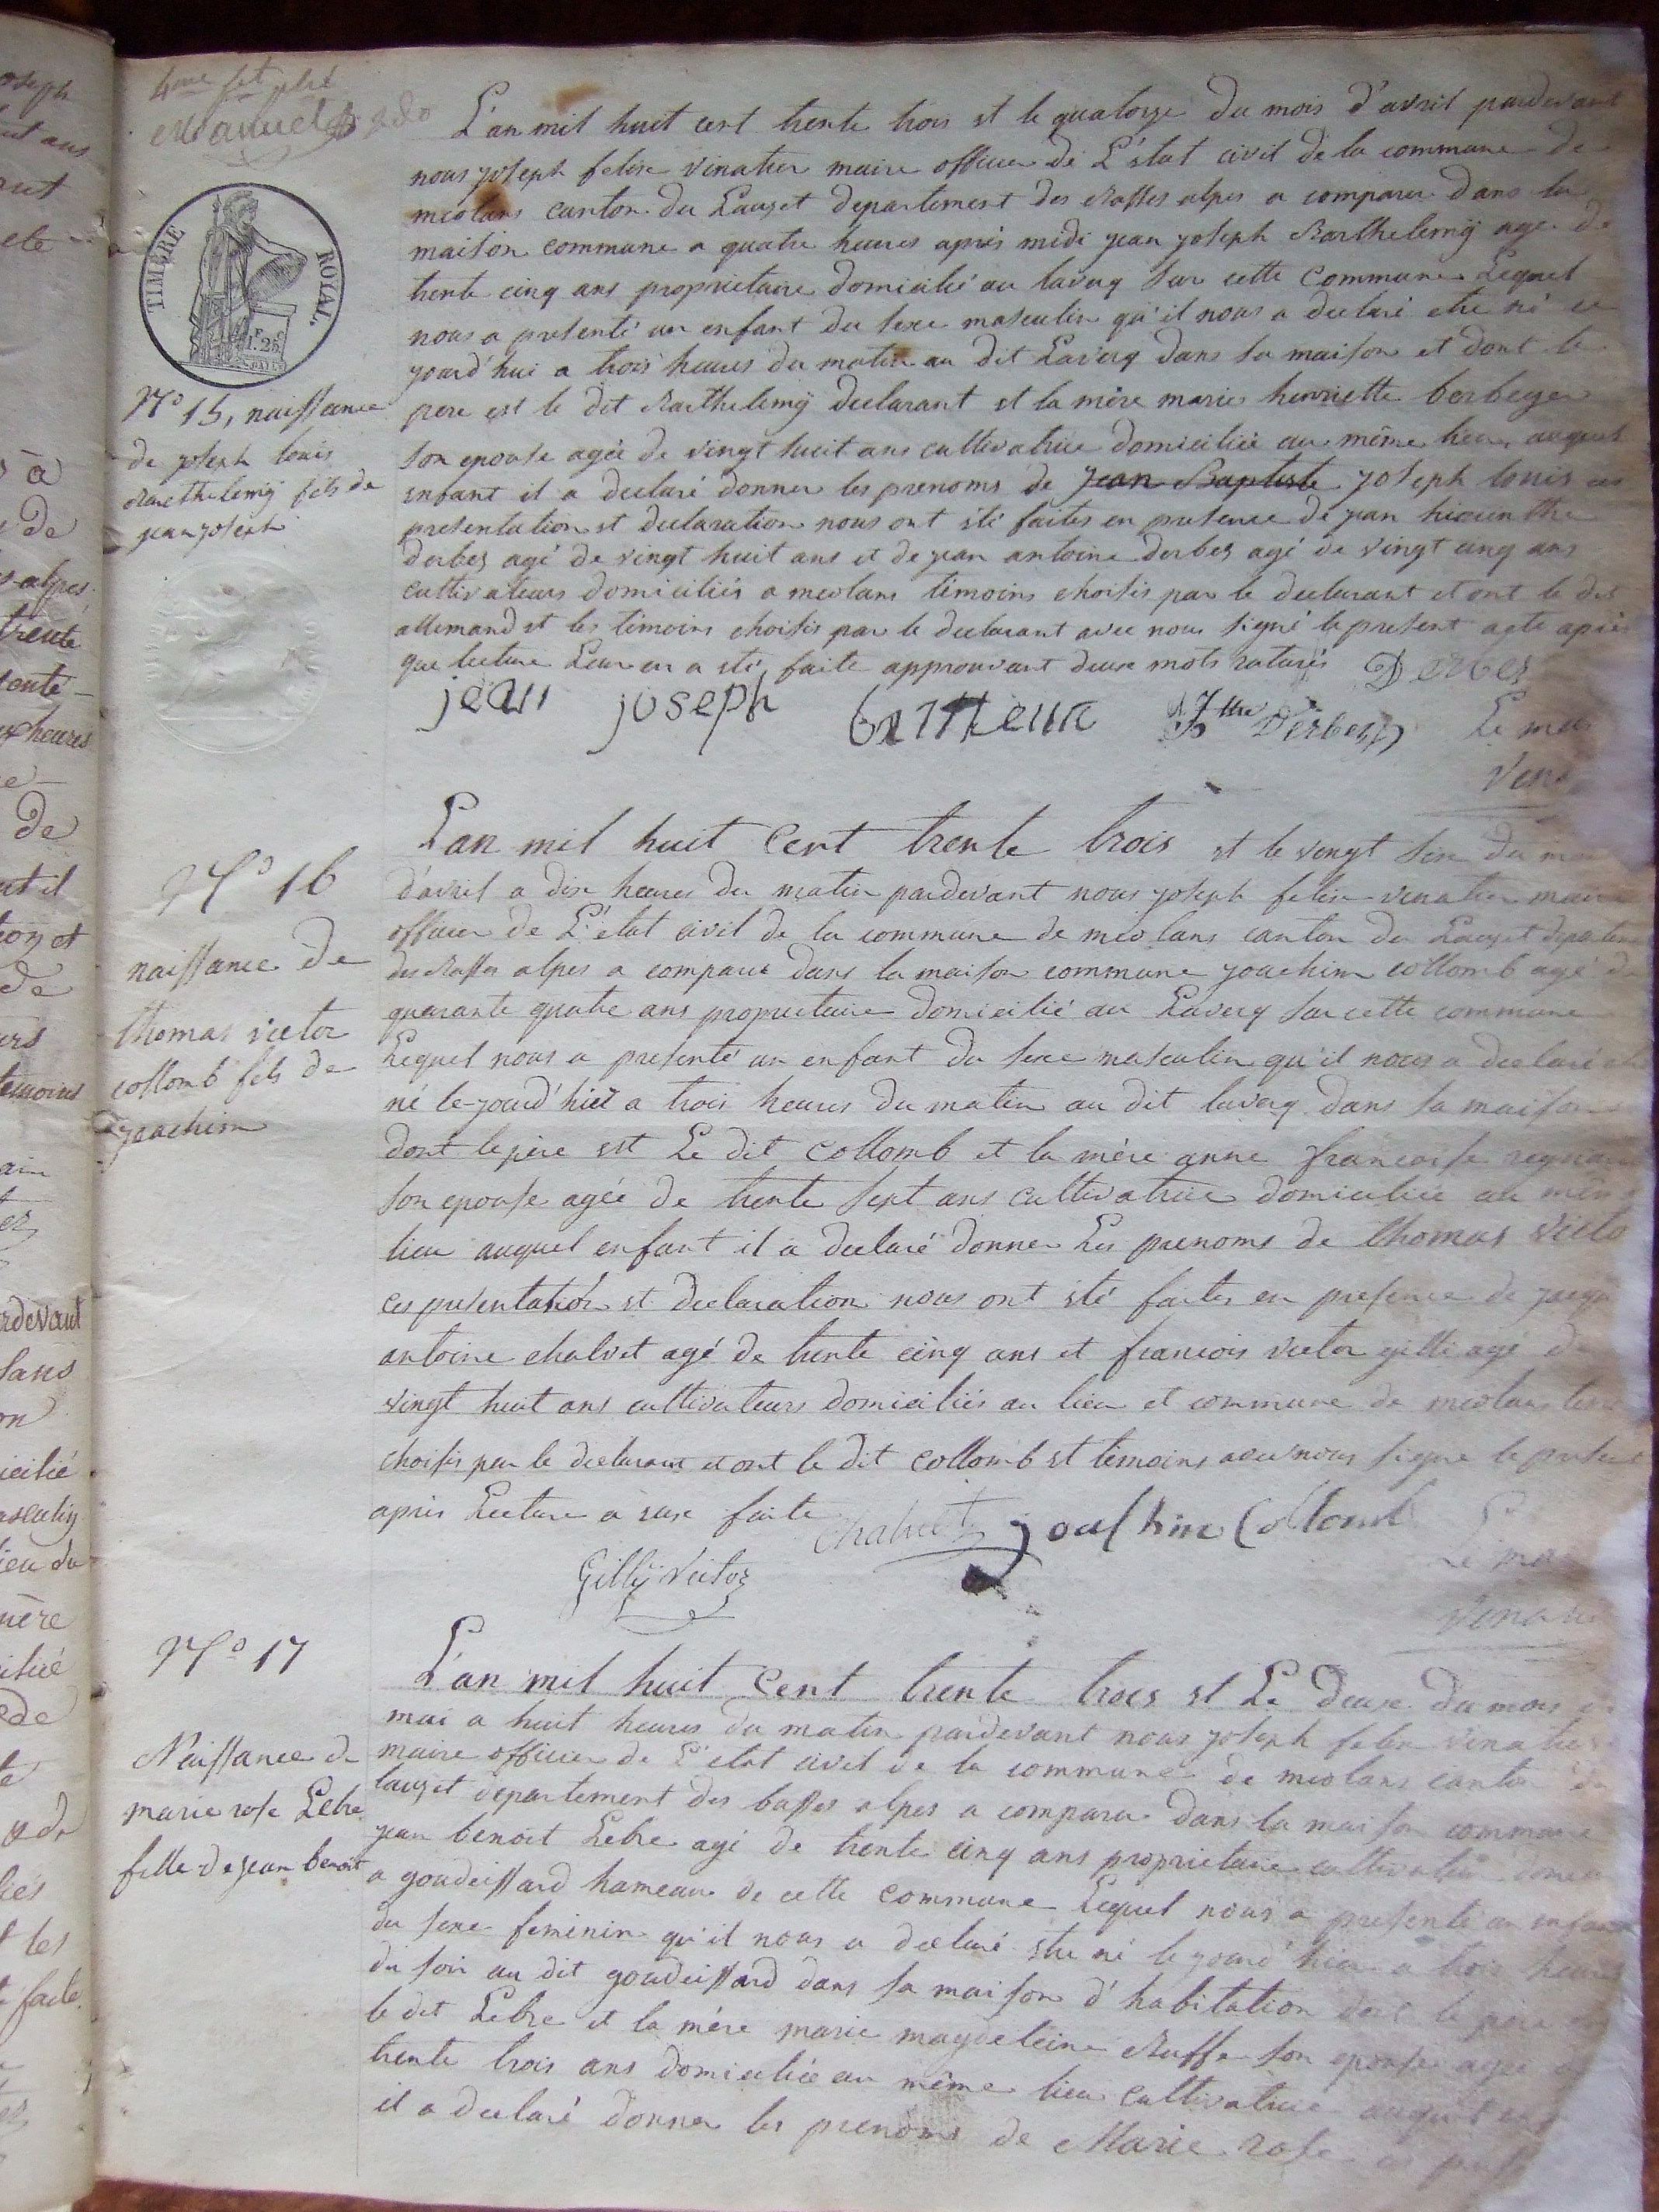 4me
TIMBRE ROYAL.
L'an mil huit cent trente trois et le quatorze du mois d'avril pardevant
nous joseph felix vinatier maire officier de L'état civil de la commune de
meolans canton du Lauzet departement des Basses alpes a comparu dans la
maison commune a quatre heures après midi jean joseph Barthelemÿ agé de
trente cinq ans proprietaire domicilié au laverq sur cette commune Lequel
nous a presenté un enfant du sexe masculin qu'il nous a declaré etre né ce
jourd'hui a trois heures du matin au dit Laverq dans sa maison et dont le
N° 15, naissance
pere est le dit Barthelemÿ declarant et la mère marie henriette
de joseph louis
son epouse agée de vingt huit ans cultivatrice domiciliée au même lieu, auquel
Barthelemÿ fils de
enfant il a declaré donner les prenoms de jean Baptiste joseph louis ces
jean joseph
presentation et declaration nous ont été faites en presence de jean hiacinthe
derbez agé de vingt huit ans et de jean antoine derbez agé de vingt cinq ans
cultivateurs domiciliés a meolans témoins choisis par le declarant et ont le dit
allemand et les témoins choisis par le declarant avec nous signé le present acte après
que lecture Leur en a été faite approuvant deux mots raturés Derbez
jean joseph Derbez Le mai
Vin
N° 16
L'an mil huit Cent trente trois et le vingt six du moi
d'avril a dix heures du matin pardevant nous joseph felix vinatier maire
officier de L'état civil de la commune de méolans canton du Lauzet departem
naissance de
des Basses alpes a comparu dans la maison commune joachim collomb agé de
quarante quatre ans proprietaire domicilié au Laverq sur cette commune
thomas victor
Lequel nous a presenté un enfant du sexe masculin qu'il nous a declaré
collomb fils de
né le jourd'hier a trois heures du matin au dit laverq dans sa maison
joachim
dont le père est Le dit Collomb et la mère anne françoise
son epouse agée de trente sept ans cultivatrice domiciliée au même
lieu auquel enfant il a declaré donner Les prenoms de thomas victo
Ces presentation et declaration nous ont été faites en presence de
antoine chalvet agé de trente cinq ans et francois victor gilli agé de
vingt huit ans cultivateurs domiciliés au lieu et commune de meolans
choisis par le declarant et ont le dit Collomb et témoins avec nous signé le present
après Lecture a eux faite Chalvet joachim Collomb
Gillÿ Victor Le mai
Vinatie
N° 17
L'an mil huit Cent trente trois et Le deux du mois
mai a huit heures du matin pardevant nous joseph felix vinatier
Naissance de
maire officier de L'état civil de la commune de meolans canton du
lauzet departement des basses alpes a comparu dans la maison commune
marie rose Lebre
jean benoit Lebre agé de trente cinq ans proprietaire cultivateur
fille de jean benoit
a goudeissard hameau de cette Commune Lequel nous a presenté un enfant
du sexe feminin qu'il nous a declaré etre né le jourd'hier a trois heures
du soir au dit goudeissard dans sa maison d'habitation dont le père
le dit Lebre et la mère marie magdeleine son epouse agée
trente trois ans domiciliée au même lieu cultivatrice auquel
il a declaré donner les prenoms de Marie rose